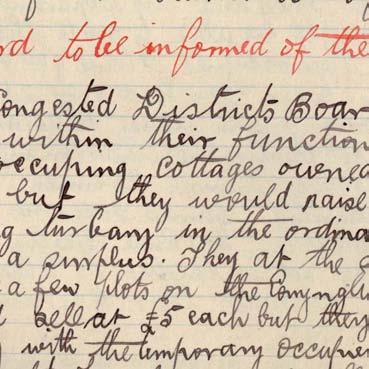 rd to be informed of the
Congested Districts Boar
within their function
occupying cottages owned
but they would raise
g turbary in the ordina
a surplus. They at the
a few plots on the Conyngh
sell at £5 each but they
with the temporary occupier